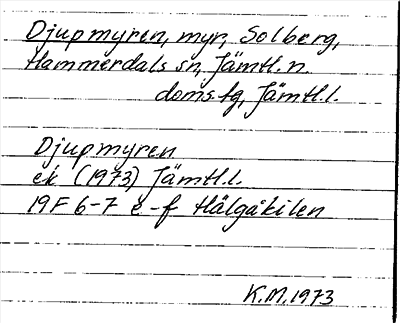 Djupmyren, myr, Solberg,
Hammerdals sn, Jämtl. n.
doms.tg, Jämtl.l.
Djupmyren
ek (1973) Jämtl.l.
19F 6-7 e-f Hälgåkilen
K.M. 1973